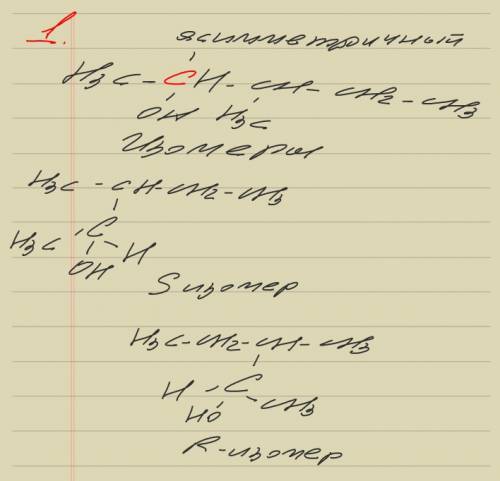 1.
асимметричный
H3C - CH - CH - CH2 - CH3
OH H3C
Изомеры
H3C - CH - CH2 - CH3
C
H3C H
OH
S изомер
H3C - CH2 - CH - CH3
H C
HO CH3
R-изомер